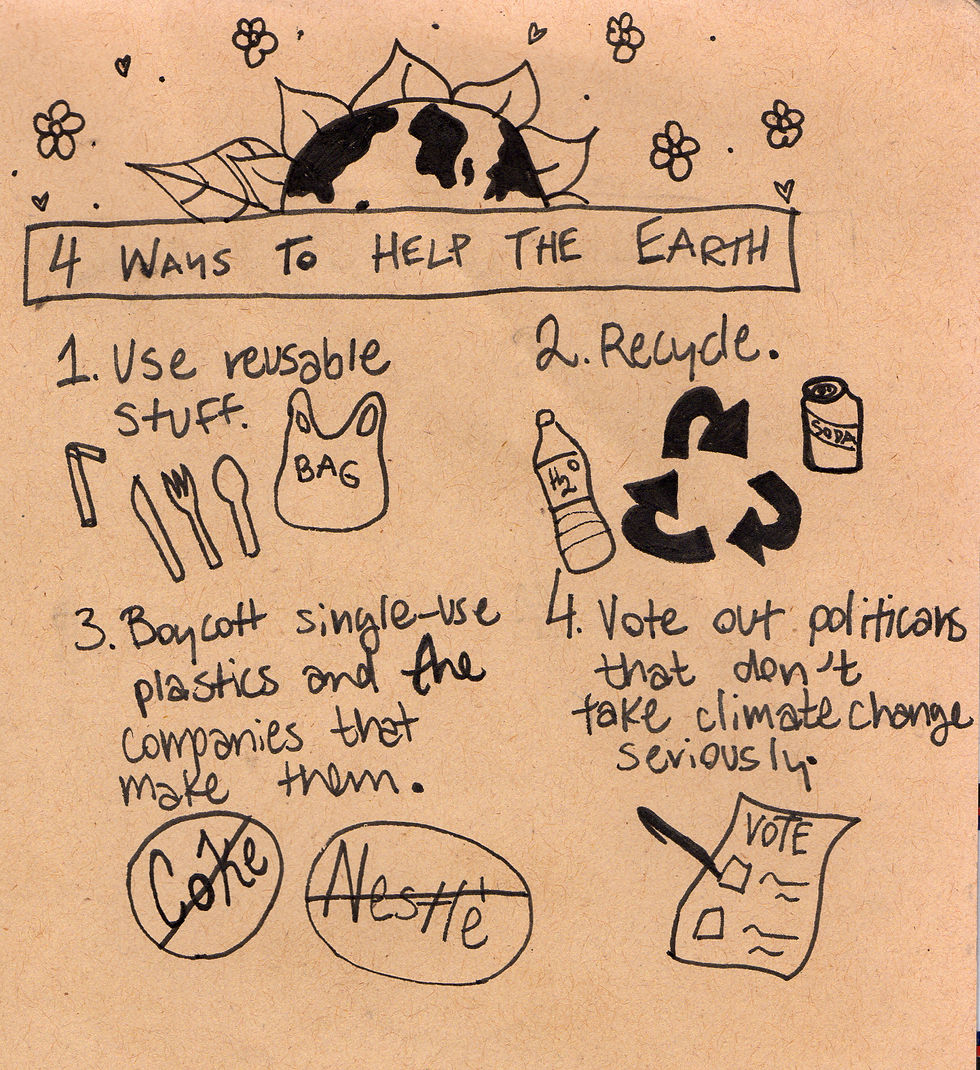 4 WAYS TO HELP THE EARTH
1. Use reusable
stuff.
BAG
2. Recycle.
H2O
SODA
3. Boycott single-use
plastics and the
companies that
make them.
Coke
Nestlé
4. Vote out politicans
that don't
take climate change
seriously.
VOTE